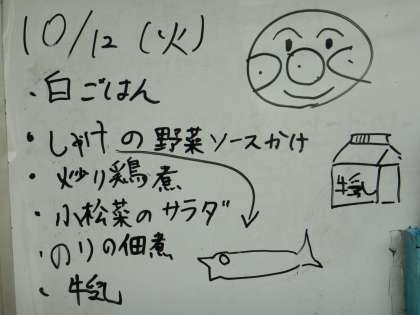 10/12 (火)
・白ごはん
・しゃけの野菜ソースかけ
・炒り鶏煮
・小松菜のサラダ
・のりの佃煮
・牛乳
牛乳